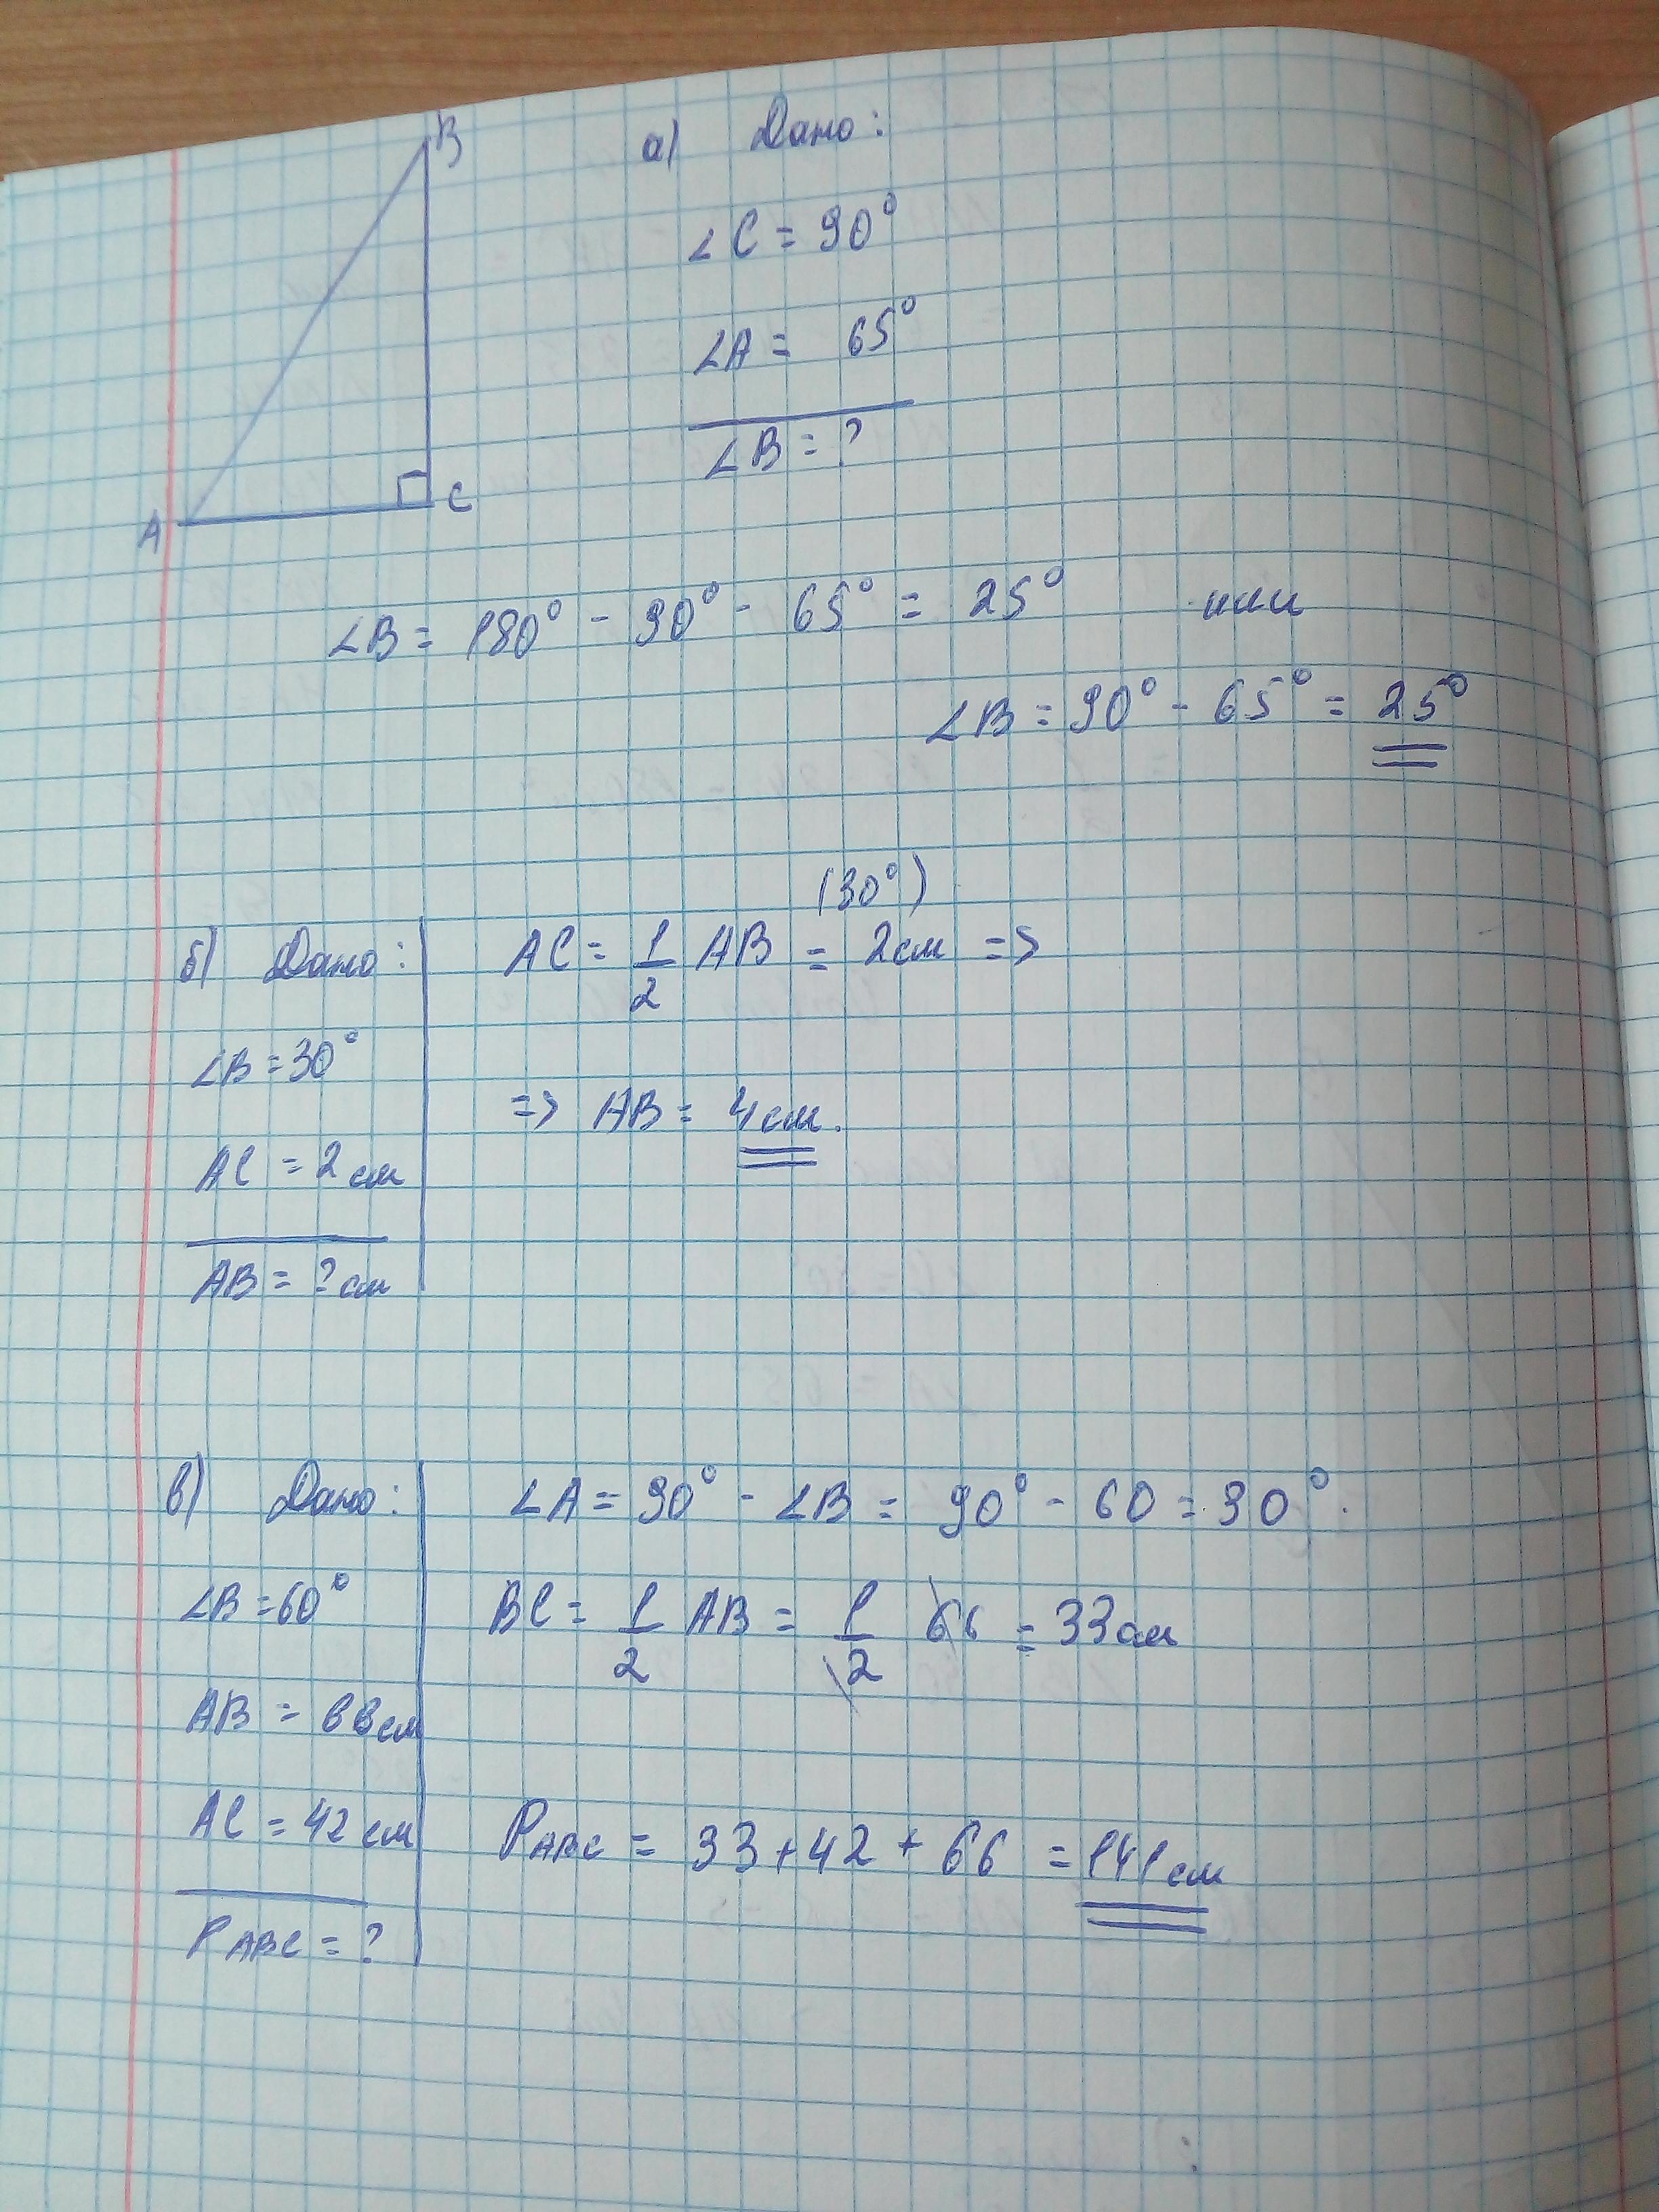 B
A
C
а) Дано:
∠C = 90°
∠A = 65°
∠B = ?
∠B = 180° - 90° - 65° = 25° или
∠B = 90° - 65° = 25°
б) Дано:
∠B = 30°
AC = 2 см
AB = ? см
(30°)
AC = 1/2 AB = 2 см =>
=> AB = 4 см.
в) Дано:
∠B = 60°
AB = 66 см
AC = 42 см
P ABC = ?
∠A = 90° - ∠B = 90° - 60 = 30°.
BC = 1/2 AB = 1/2 66 = 33 см
P ABC = 33 + 42 + 66 = 141 см